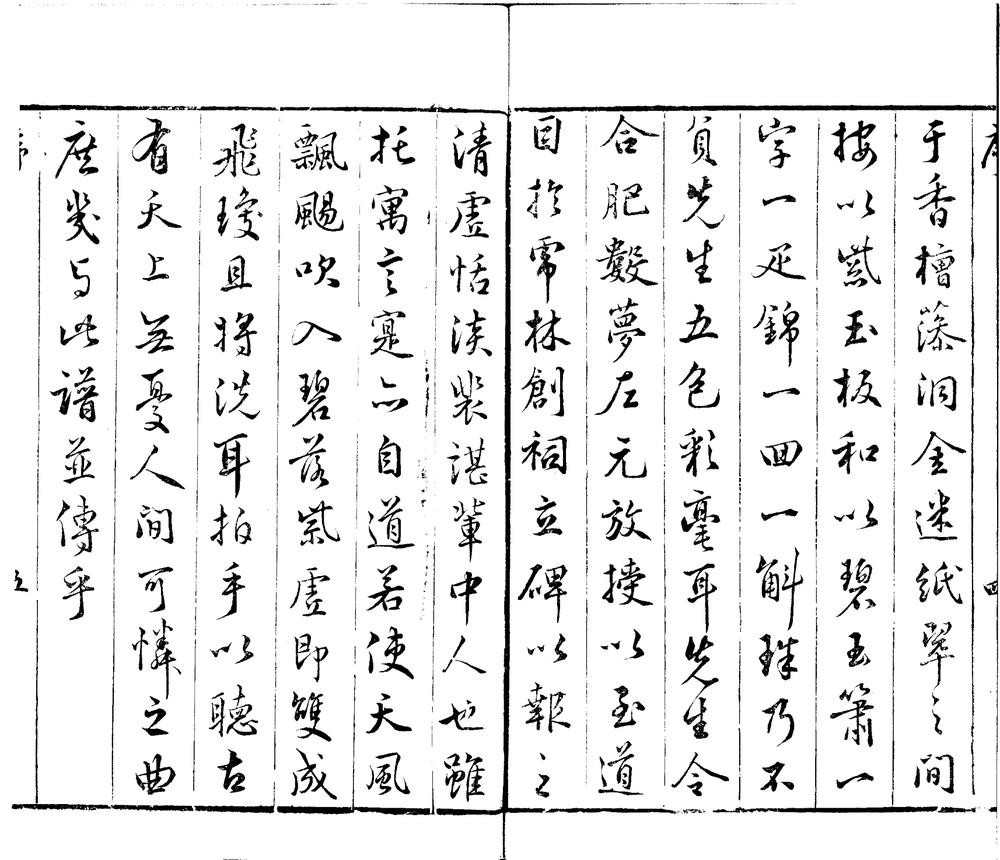 于香檀藻洞金迷紙翠之間
按以紫玉板和以碧玉簫一
字一疋錦一回一斛珠乃不
負先生五色彩毫耳先生令
合肥數夢左元放授以至道
因於霛林創祠立碑以報之
清虛恬淡裴諶輩中人也雖
托寓言寔亦自道若使天風
飄颺吹入碧落紫虛即雙成
飛瓊且將洗耳拍手以聽古
有天上無憂人間可憐之曲
庶幾與此譜並傳乎